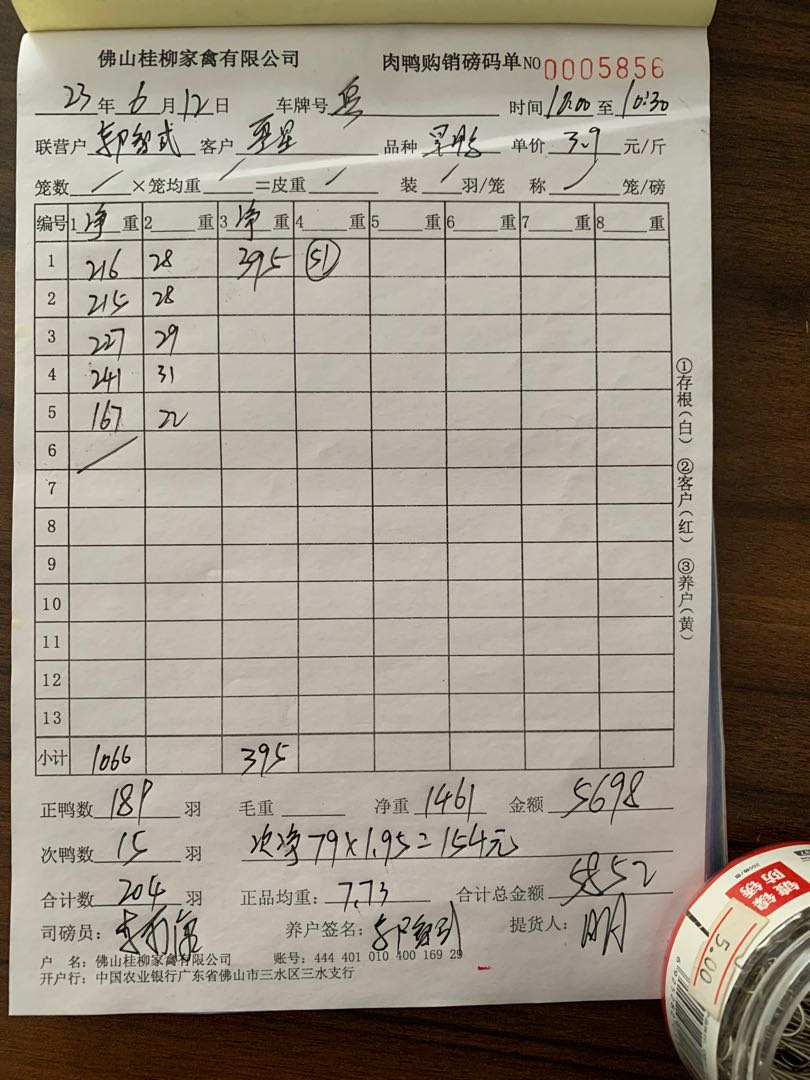 佛山桂柳家禽有限公司 肉鸭购销磅码单 NO 0005856
23年6月12日 车牌号 兵 时间 10:00 至 10:30
联营户 客户 品种 单价 3.9 元/斤
笼数 / ×笼均重 / =皮重 / 装 / 羽/笼 称 / 笼/磅
编号 1 净 重 2 重 3 净 重 4 重 5 重 6 重 7 重 8 重
1 216 28 395 51
2 215 28
3 227 29
4 241 31
5 167 22
6 /
7
8
9
10
11
12
13
小计 1066 395
正鸭数 189 羽 毛重 净重 1461 金额 5698
次鸭数 15 羽 次净79×1.95=154元
合计数 204 羽 正品均重: 7.73 合计总金额 5852
司磅员: 养户签名: 提货人:
户 名: 佛山桂柳家禽有限公司 账号: 444 401 010 400 169 29
开户行: 中国农业银行广东省佛山市三水区三水支行
①存根(白) ②客户(红) ③养户(黄)
镀镍
防锈
5.00